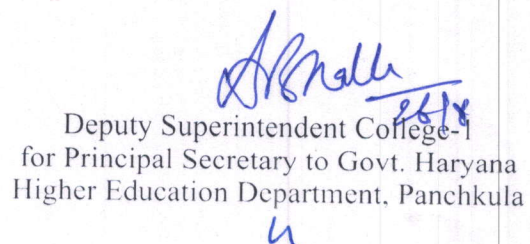 26/8
Deputy Superintendent College-1
for Principal Secretary to Govt. Haryana
Higher Education Department, Panchkula